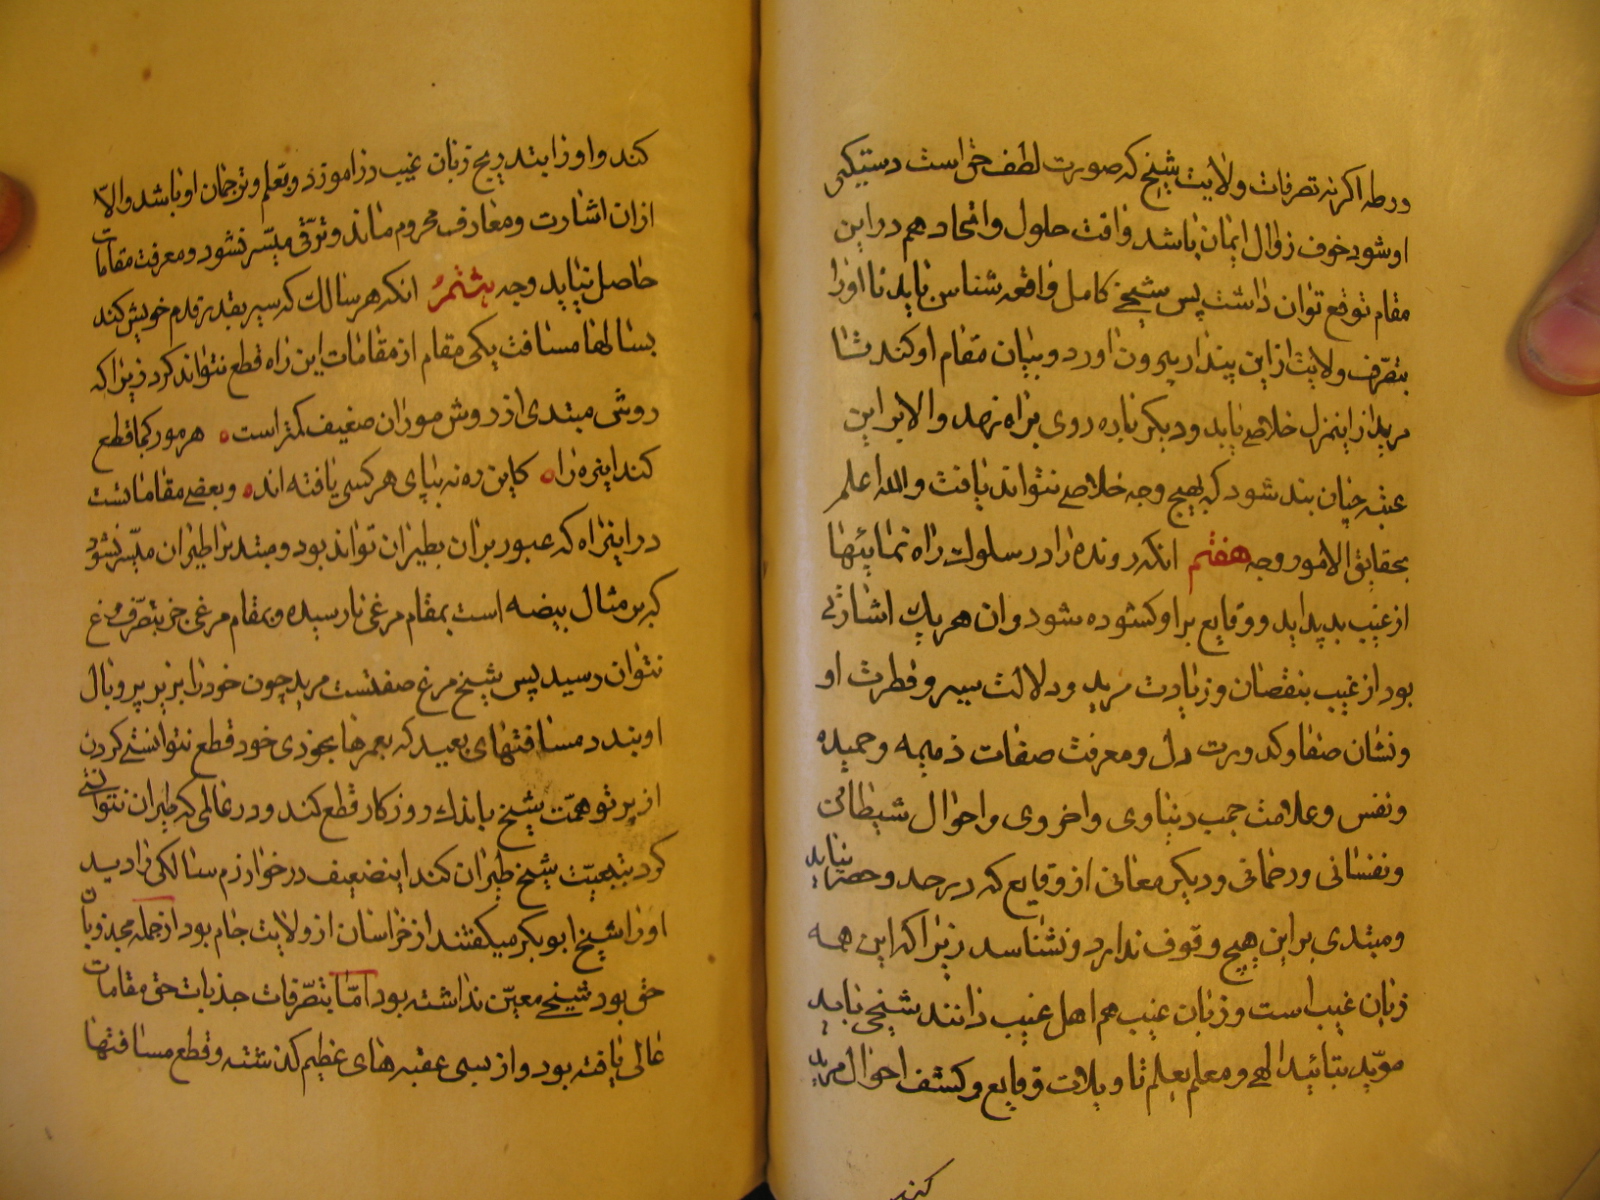 ورطه اکر نه تصرفات ولایت شیخ که صورت لطف حق است دستیکیر
او شود خوف زوال ایمان باشد وافت حلول واتحاد هم در این
مقام توقع توان داشت پس شیخی کامل واقعه شناس باید تا اورا
بتصرف ولایت از این پندار بیرون اورد و بیان مقام او کند تا
مرید از اینمنزل خلاص یابد و دیکر باره روی براه نهد والا بر این
عقبه چنان بند شود که بهیچ وجه خلاص نتواند یافت والله اعلم
بحقایق الامور وجه هفتم انکه رونده را در سلوک راه نمایشها
از غیب بدید اید ووقایع بر او کشوده شود وان هر یک اشارتی
بود از غیب بنقصان وزیادت مرید ودلالت سیر وفطرت او
ونشان صفا وکدورت دل ومعرفت صفات ذمیمه وحمیده
ونفس وعلامت حجب دنیاوی واخروی واحوال شیطانی
ونفسانی ورحمانی ودیکر معانی از وقایع که در حد وحصر نیاید
ومبتدی بر این هیچ وقوف ندارد ونشناسد زیرا که این همه
زبان غیب است وزبان غیب هم اهل غیب دانند شیخی باید
موید بتائید الهی ومعلم بعلم تاویلات وقایع وکشف احوال مرید
کند
کند واورا بتدریج زبان غیب در اموزد وتعلم وترجمان او باشد والا
از ان اشارت ومعارف محروم ماند وترقی میسر نشود ومعرفت مقامات
حاصل نیاید وجه هشتم انکه هر سالک که سیر بقدر قدم خویش کند
بسالها مسافت یکی مقام از مقامات این راه قطع نتواند کرد زیرا که
روش مبتدی از روش موران ضعیف کمتر است ه هر مور کجا قطع
کند اینره را ه کاین ره نه بپای هر کسی یافته اند ه وبعضی مقاماتست
در اینراه که عبور بر ان بطیران تواند بود ومبتد برا طیران میسر نشود
که بر مثال بیضه است بمقام مرغی نارسیده وبمقام مرغی جز بتصرف مرغ
نتوان رسید پس شیخ مرغ صفتست مرید چون خود را بر پر وبال
او بندد مسافتهای بعید که بعمرها بخودی خود قطع نتوانستی کردن
از پرتو همت شیخ باندک روزکار قطع کند ودر عالمی که طیران نتوانستی
کرد بتبعیت شیخ طیران کند اینضعیف در خوارزم سالکی را دید
اورا شیخ ابوبکر میکفتند از خراسان از ولایت جام بود از جمله مجذوبان
حق بود شیخی معین نداشته بود اما بتصرفات جذبات حق مقامات
عالی یافته بود واز بسی عقبه های عظیم کذشته وقطع مسافتها